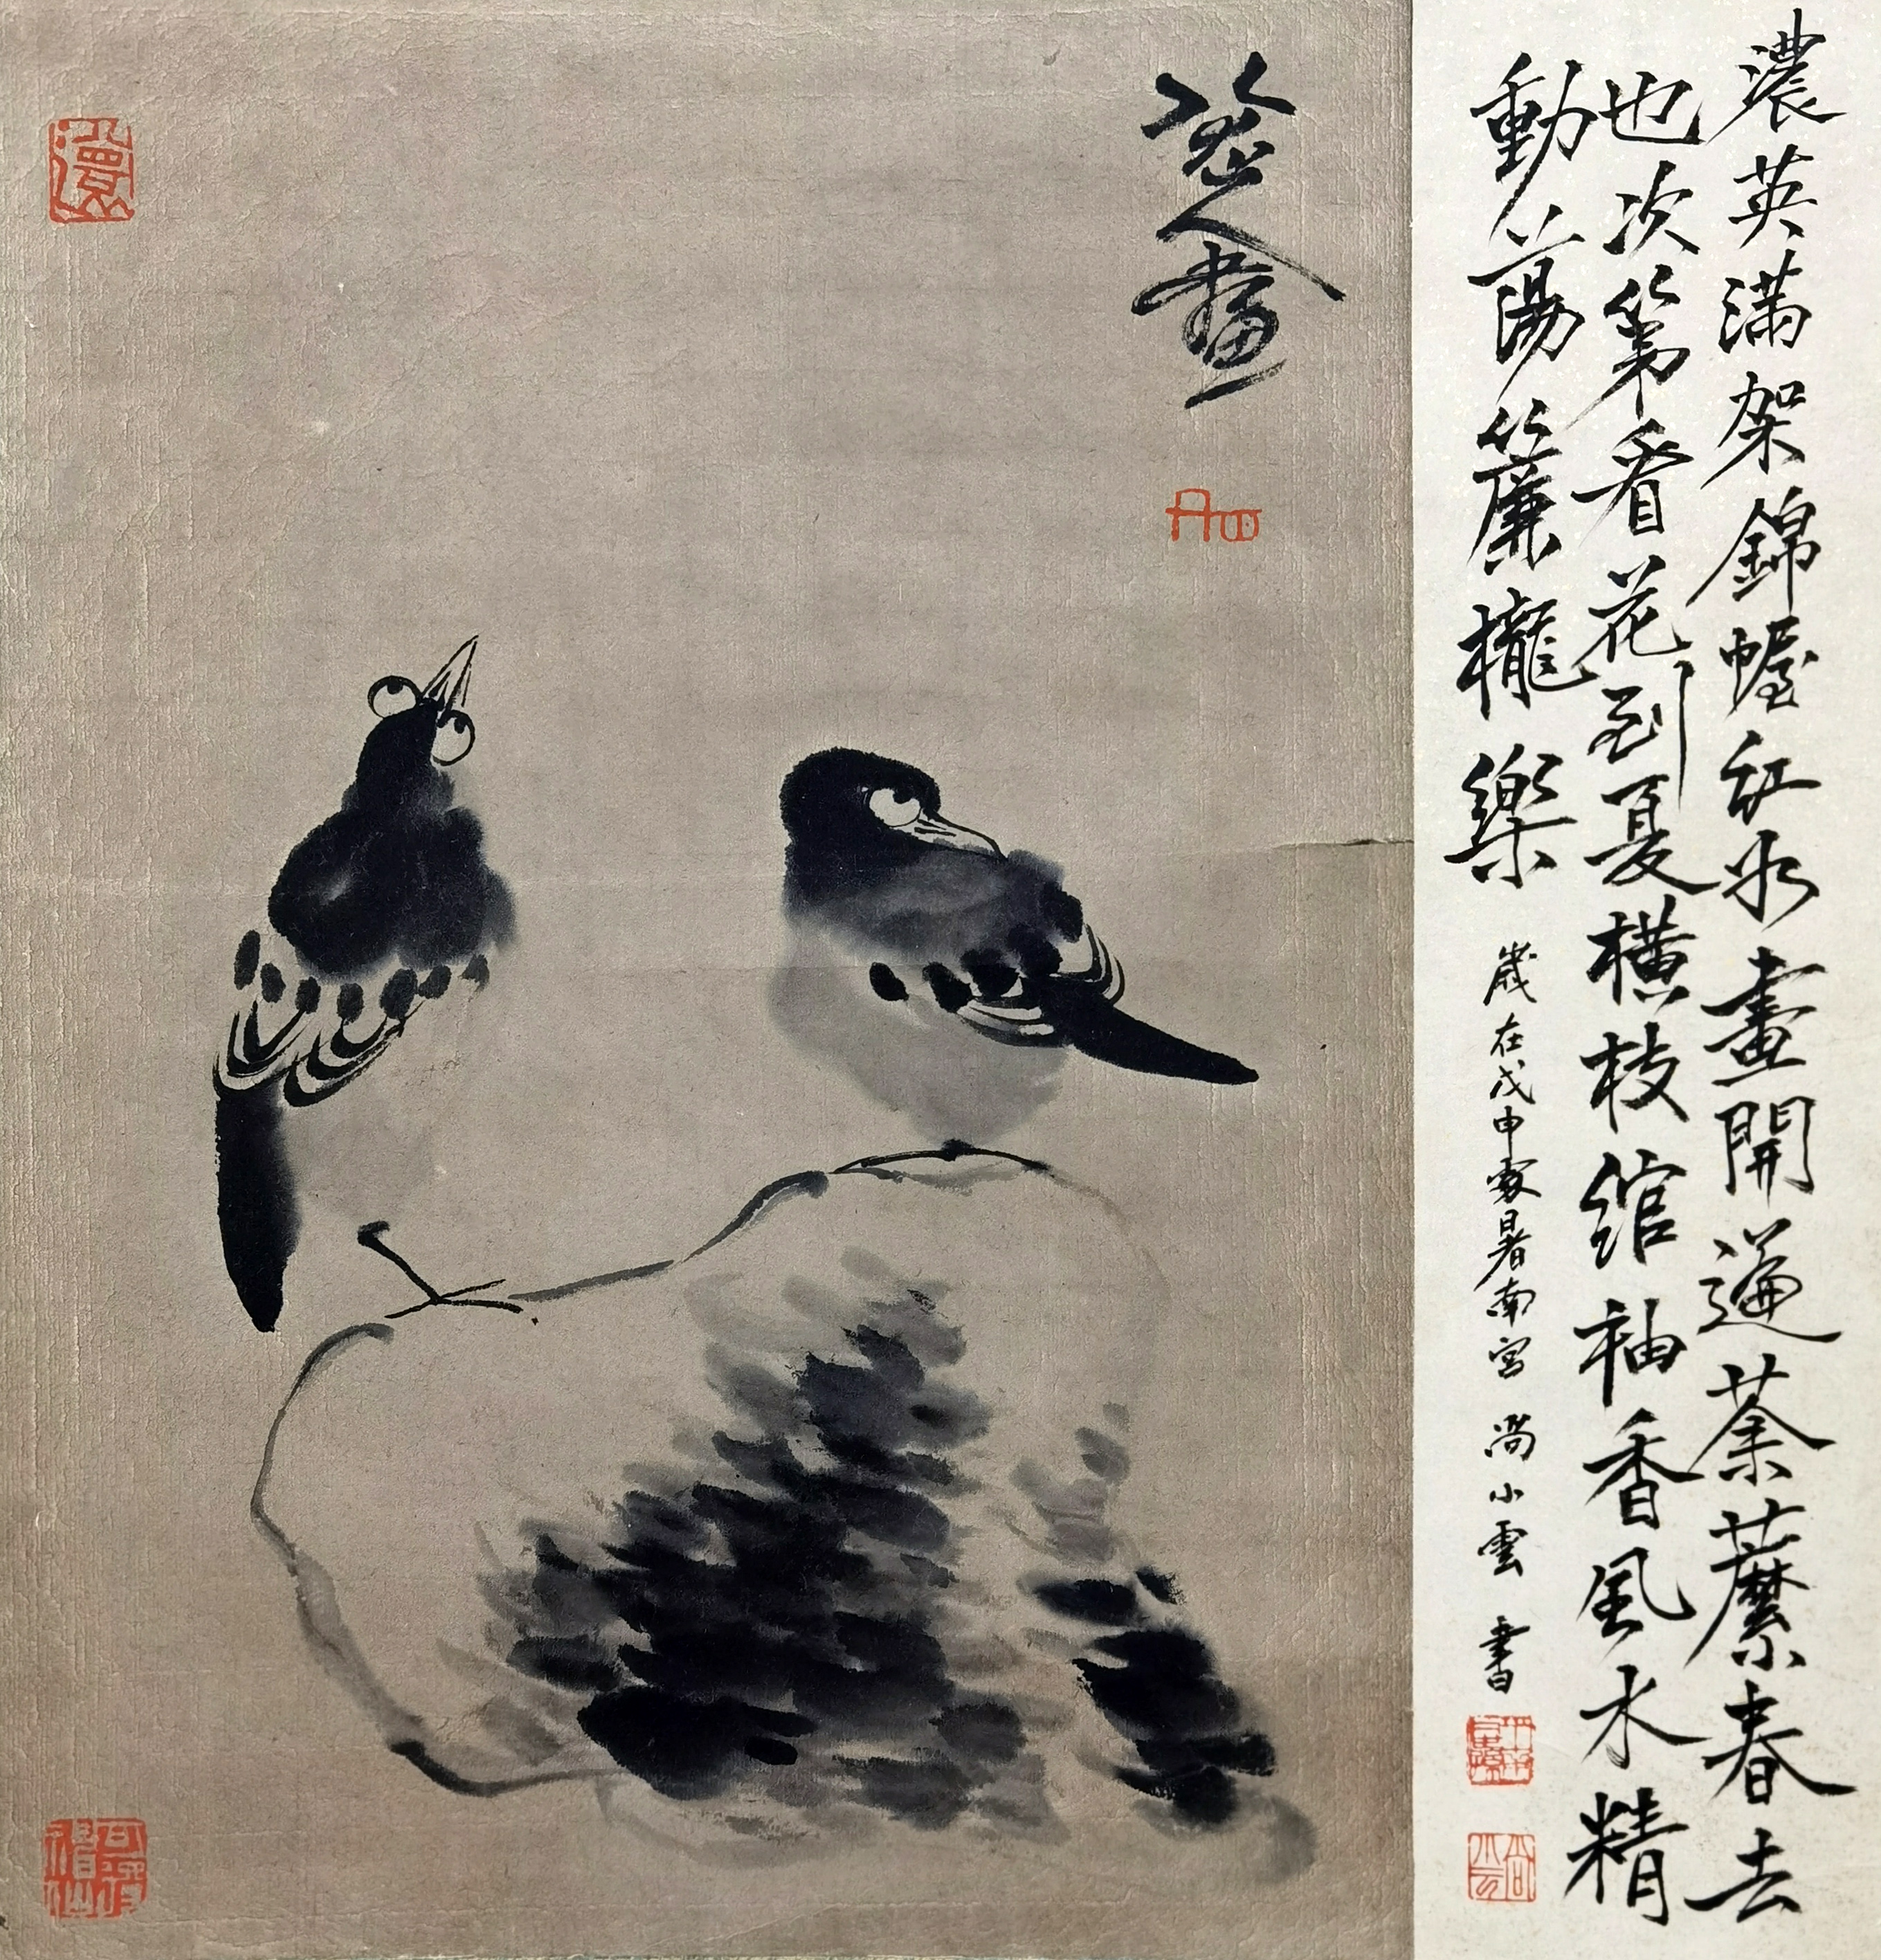 濃英满架錦幄紅永晝開遍荼蘼春去
也次第看花到夏橫枝綰袖香風水精
動蕩簾櫳樂 歲在戊申處暑南宮 尚小雲 書
八大山人畫